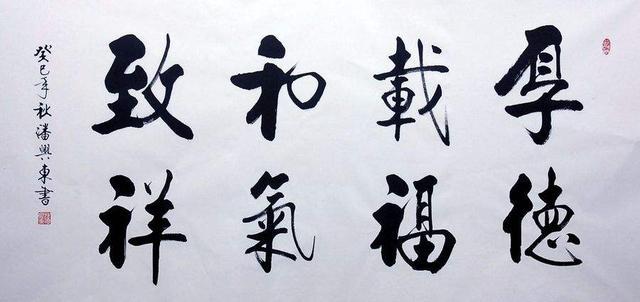 厚德
載福
和氣
致祥
癸巳年秋潘興東書